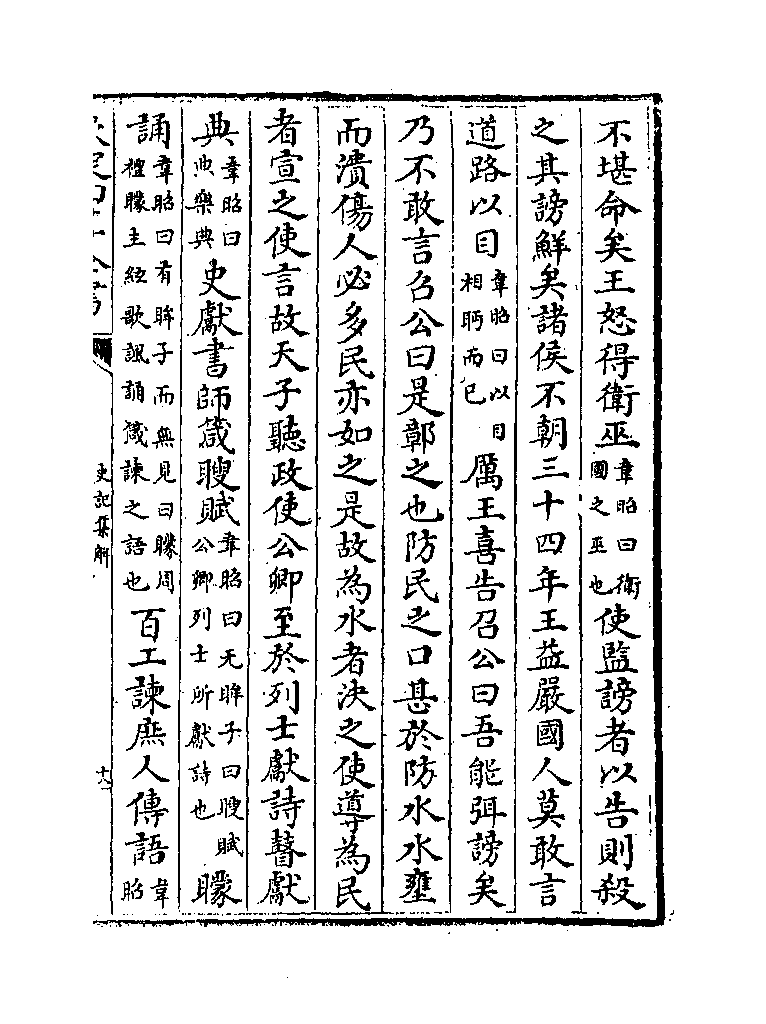 不堪命矣王怒得衛巫韋昭曰衛國之巫也使監謗者以告則殺
之其謗鮮矣諸侯不朝三十四年王益嚴國人莫敢言
道路以目韋昭曰以目相眄而已厲王喜告召公曰吾能弭謗矣
乃不敢言召公曰是鄣之也防民之口甚於防水水壅
而潰傷人必多民亦如之是故為水者決之使導為民
者宣之使言故天子聽政使公卿至於列士獻詩瞽獻
典韋昭曰典樂典史獻書師箴瞍賦韋昭曰无眸子曰瞍賦公卿列士所獻詩也矇
誦韋昭曰有眸子而無見曰矇周禮矇主絃歌諷誦箴諫之語也百工諫庶人傳語韋昭
史記集解